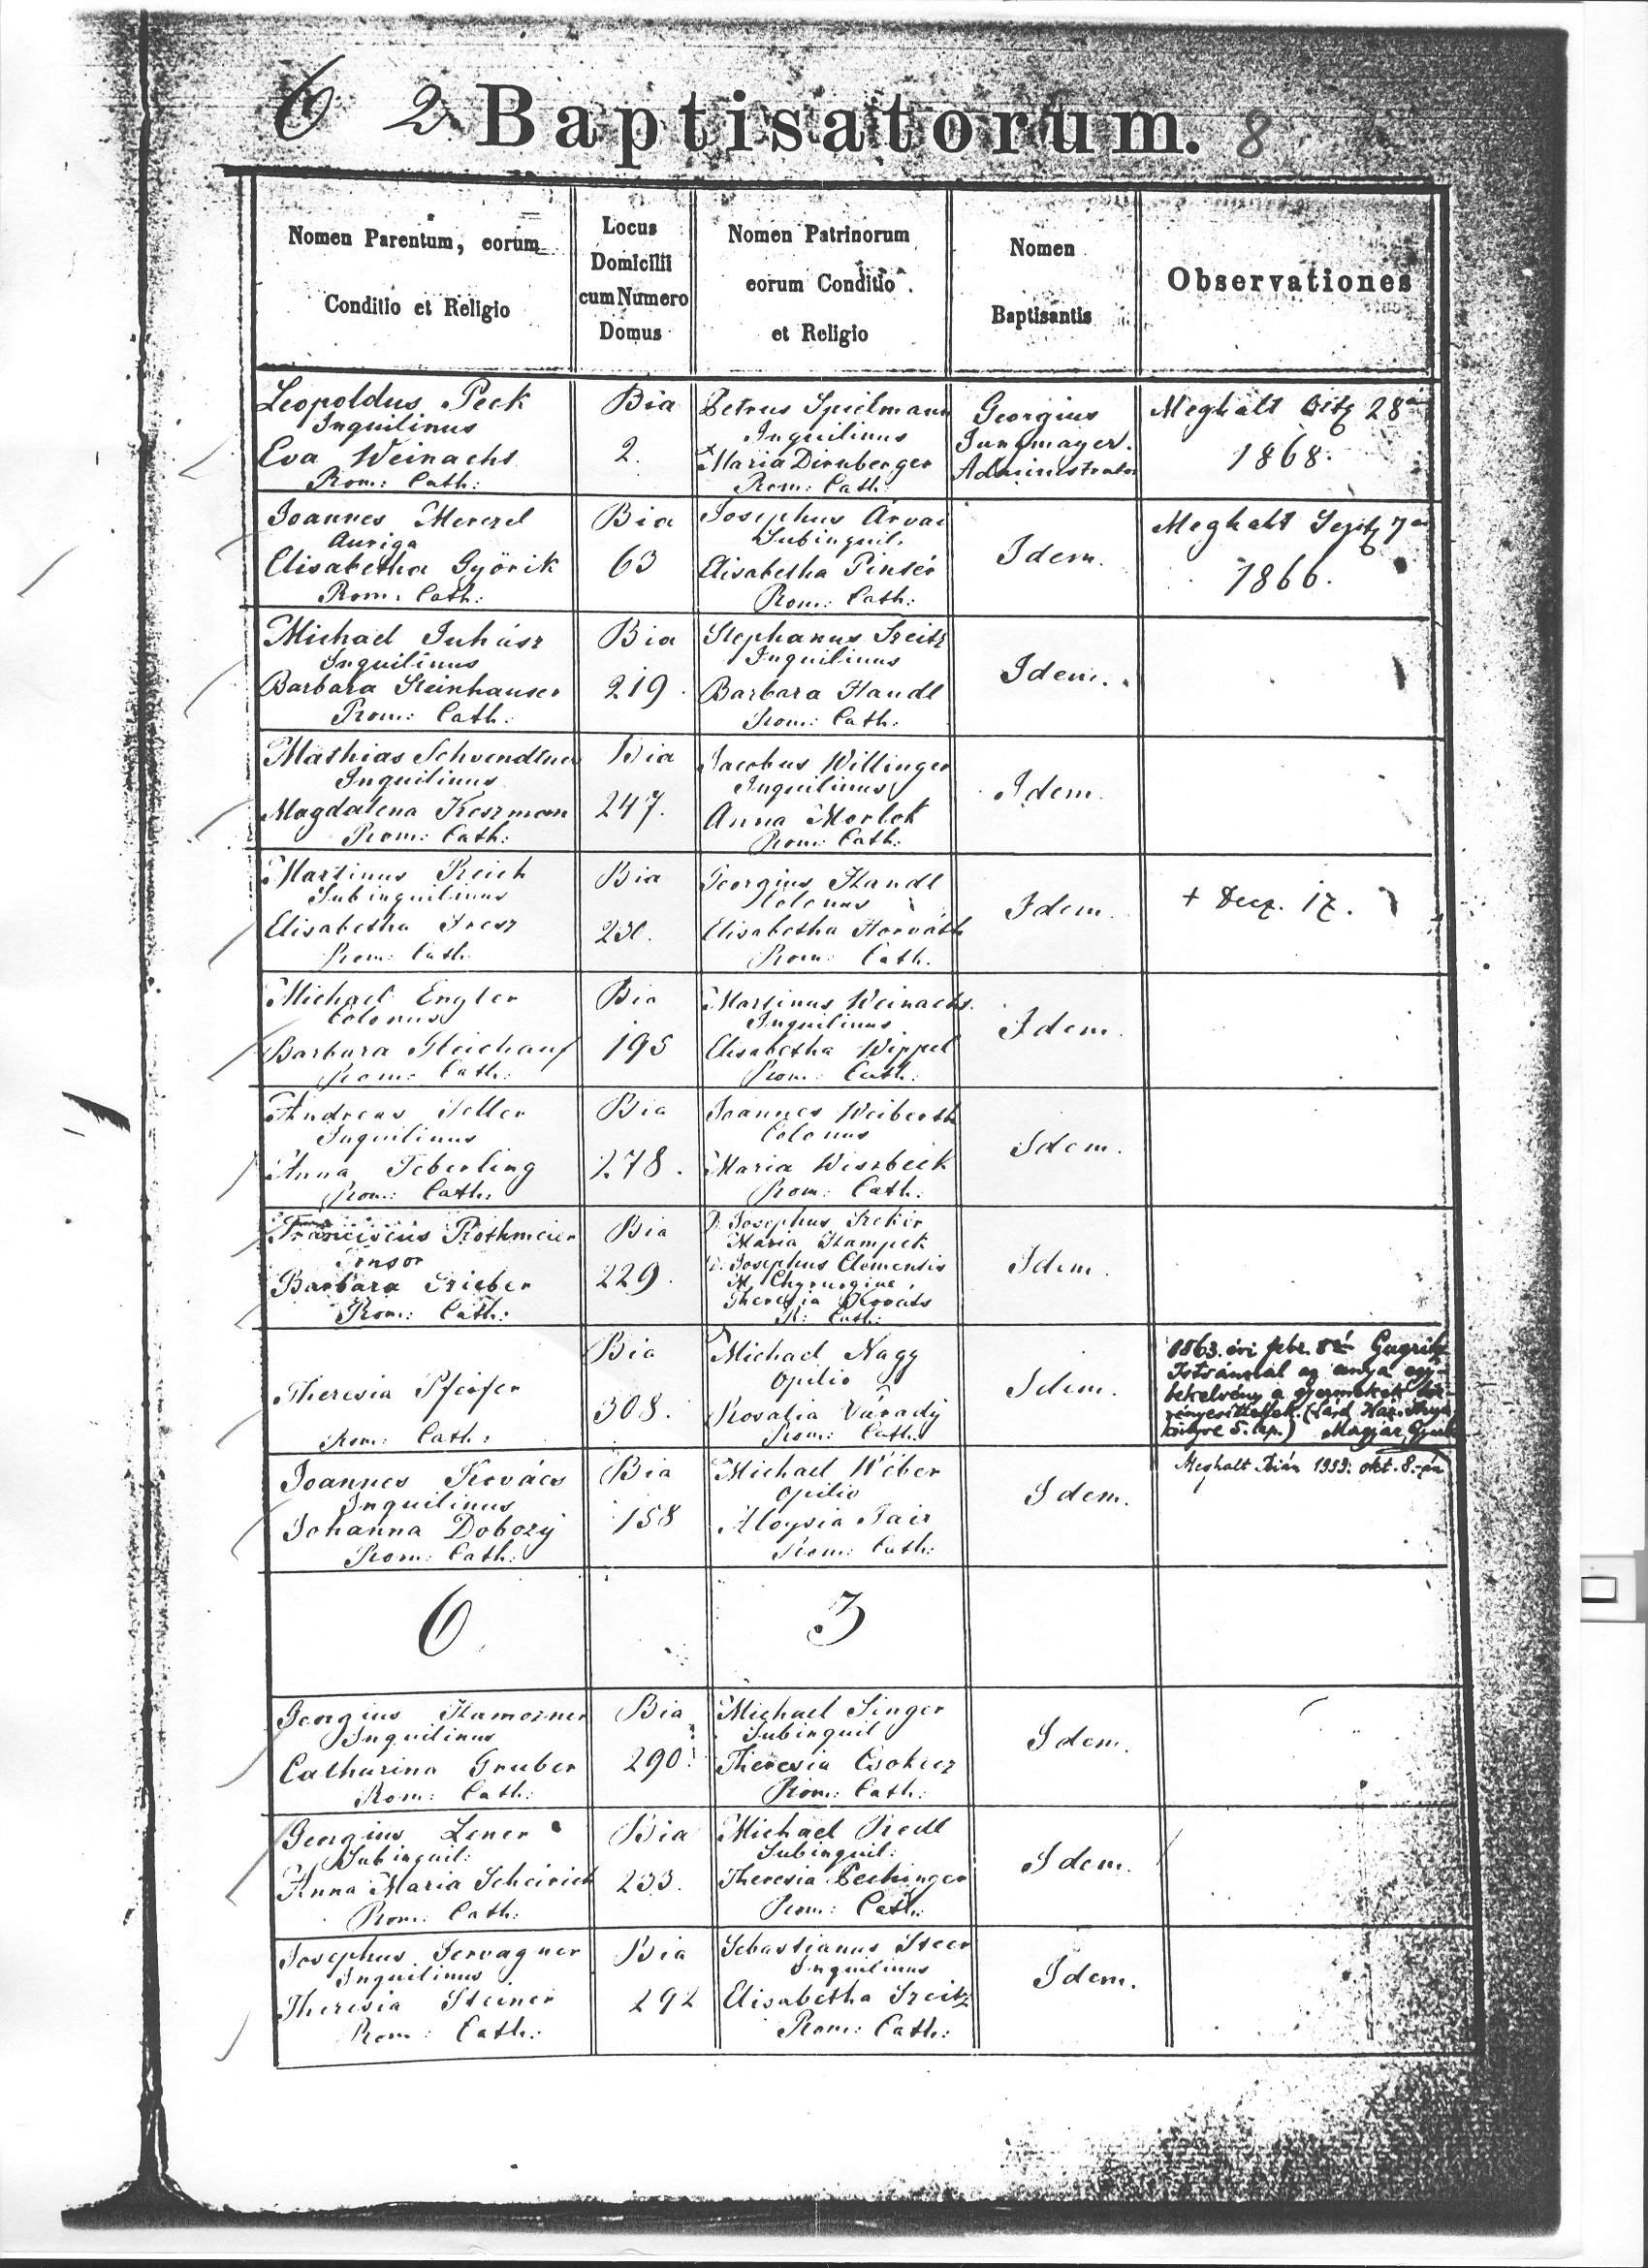 6 2 Baptisatorum. 8
Nomen Parentum, eorum
Conditio et Religio
Locus
Domicilii
cum Numero
Domus
Nomen Patrinorum
eorum Conditio
et Religio
Nomen
Baptisantis
Observationes
Leopoldus Peck
Inquilinus
Eva Weinachs
Rom: Cath:
Bia
2.
Petrus Spielmann
Inquilinus
Maria Dirnberger
Rom: Cath:
Georgius
Jungmayer.
Administrator
Meghalt 28
1868.
Joannes Menczel
Auriga
Elisabetha Györik
Rom: Cath:
Bia
63
Josephus Árvai
Subinquil.
Elisabetha Pintér
Rom: Cath:
Idem.
Meghalt Sept 7
1866.
Michael Juhász
Inquilinus
Barbara Steinhauser
Rom: Cath:
Bia
219.
Stephanus Szeitz
Inquilinus
Barbara Handl
Rom: Cath:
Idem.
Mathias Schvendtner
Inquilinus
Magdalena Keszmann
Rom: Cath:
Bia
247.
Jacobus Willinger
Inquilinus
Anna Morlok
Rom: Cath:
Idem.
Martinus Reich
Subinquilinus
Elisabetha
Rom: Cath:
Bia
Georgius Handl
Colonus
Elisabetha Horváth
Rom: Cath.
Idem.
+ Dec. 17.
Michael Engler
Colonus
Barbara Gleichauf
Rom: Cath:
Bia
195
Martinus Weinachs.
Inquilinus
Elisabetha Weppel
Rom: Cath:
Idem.
Andreas Feller
Inquilinus
Anna Teberling
Rom: Cath:
Bia
278.
Joannes Weiberth
Colonus
Maria Wiszbeck
Rom: Cath:
Idem.
Franciscus Rothmeier
Tonsor
Barbara Szieber
Rom: Cath:
Bia
229.
Josephus Szekér
Maria Hampek
Josephus Clementis
M. Chyrurgiae
Theresia Kovats
R: Cath:
Idem.
Theresia Pfeifer
Rom: Cath:
Bia
308.
Michael Nagy
Opilio
Rosalia Várady
Rom: Cath:
Idem.
1863. évi febr. 8
Istvánnal az anya
a gyermekek
5. lap.) Magyar
Joannes Kovács
Inquilinus
Johanna Dobozy
Rom: Cath:
Bia
158
Michael Wéber
Opilio
Aloysia Pair
Rom: Cath:
Idem.
Meghalt Bián 1939. okt. 8.-án
6 3
Georgius Hamozner
Inquilinus
Catharina Gruber
Rom: Cath:
Bia
290.
Michael Singer
Subinquil
Theresia
Rom: Cath:
Idem.
Georgius Lener
Subinquil:
Anna Maria Scheirich
Rom: Cath:
Bia
233.
Michael Riedl
Subinquil:
Theresia Pechinger
Rom: Cath:
Idem.
Josephus Servagner
Inquilinus
Theresia Steiner
Rom: Cath:
Bia
292
Sebastianus Steer
Inquilinus
Elisabetha Szeitz
Rom: Cath:
Idem.